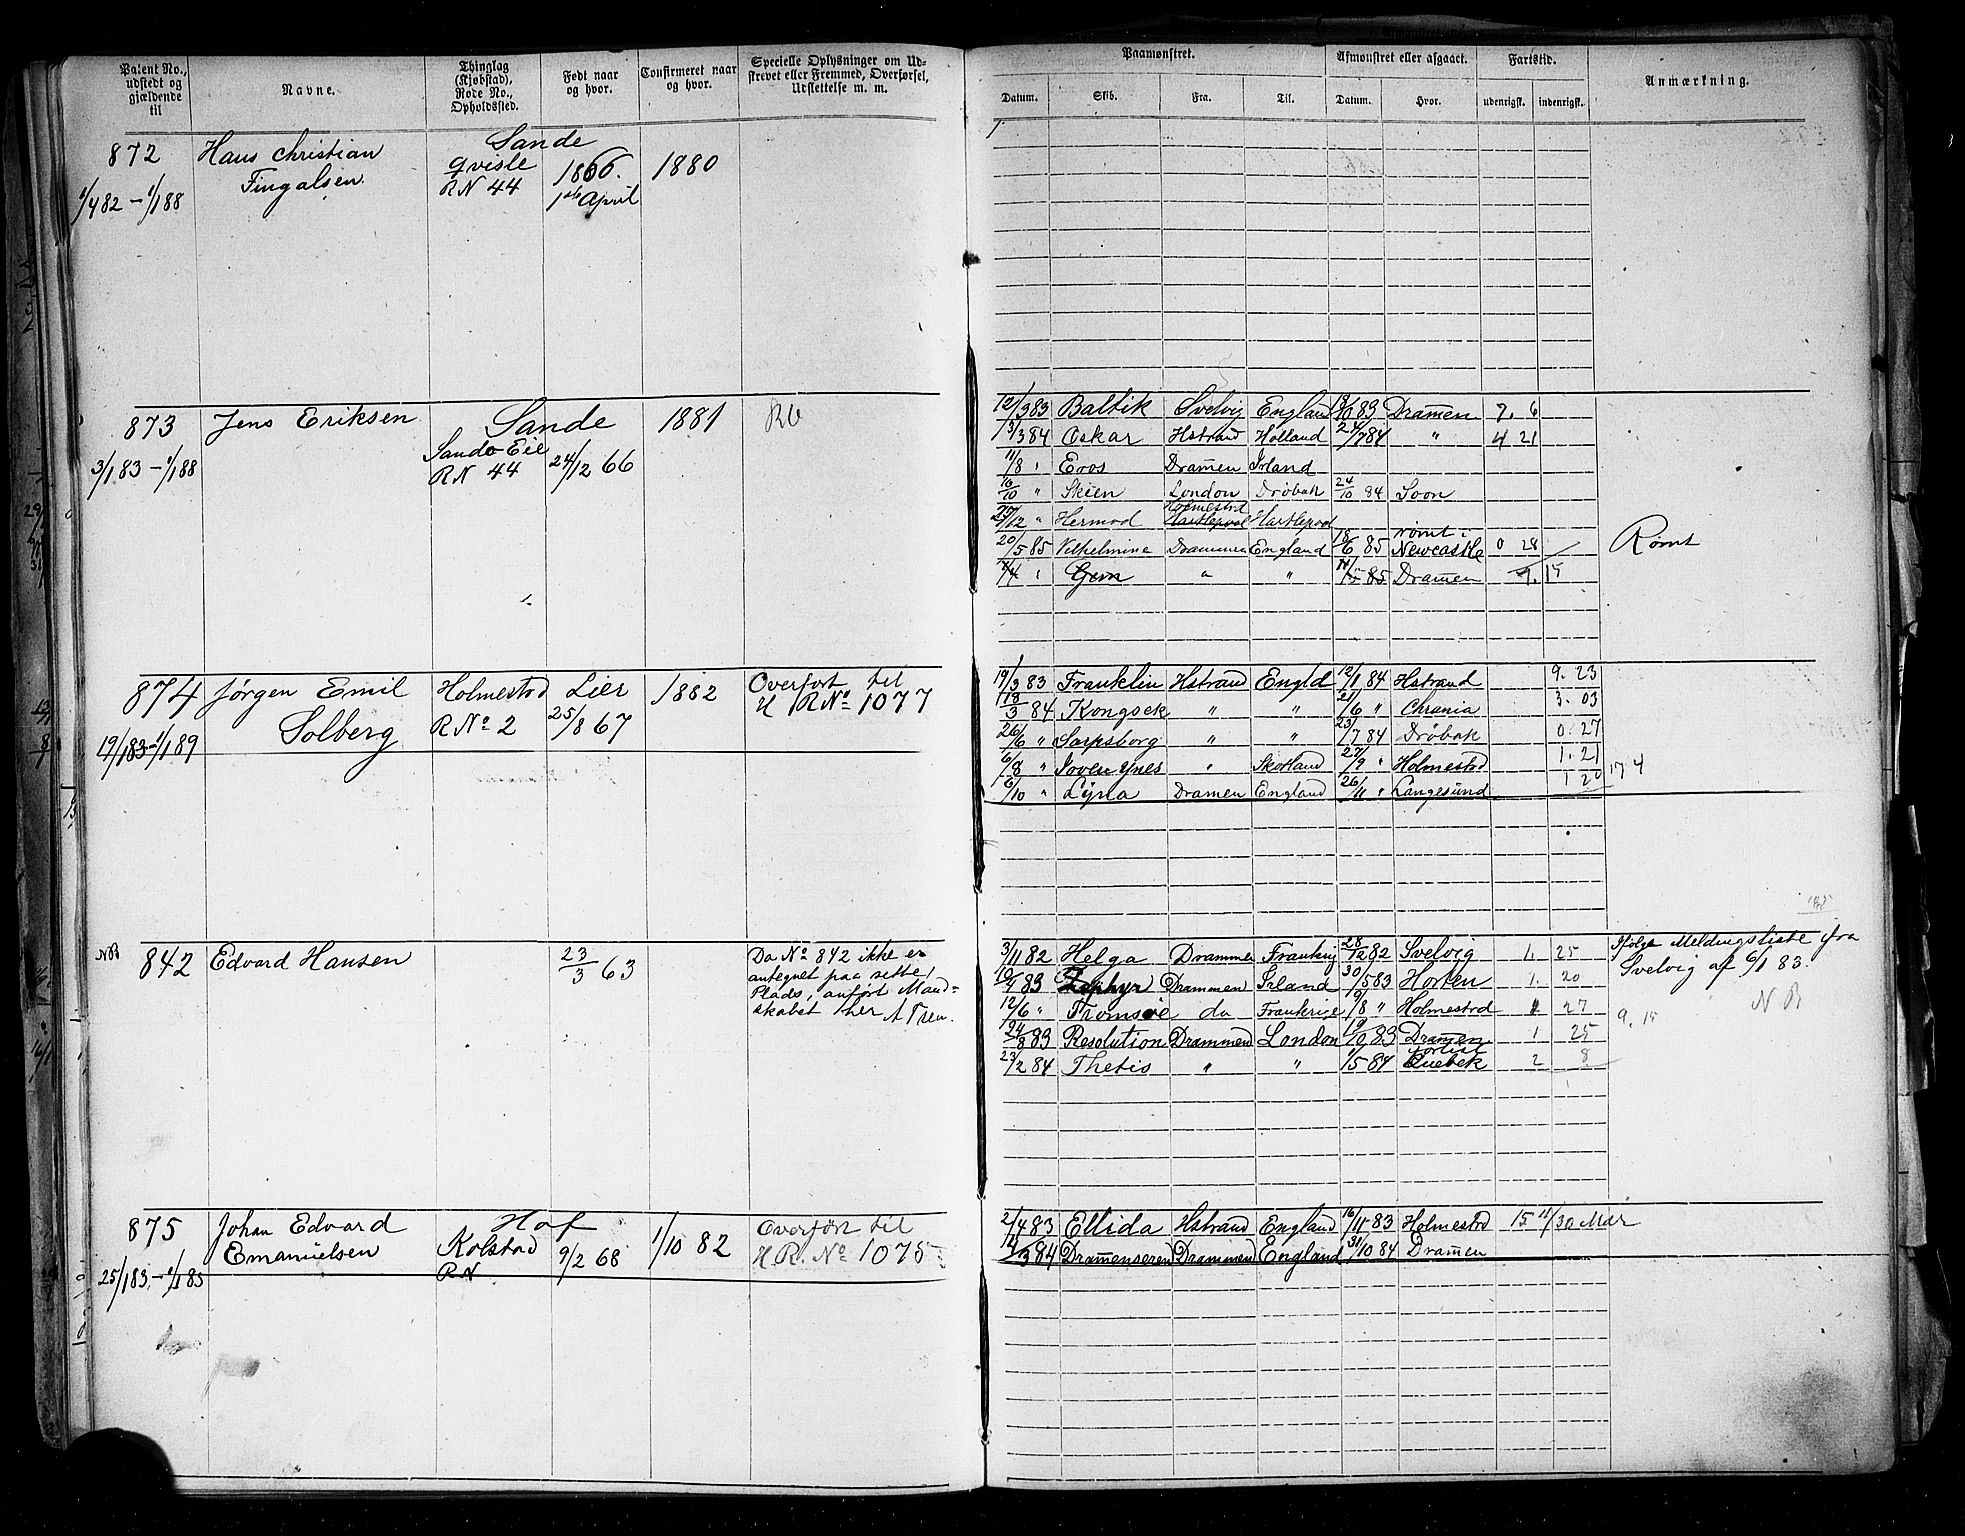 Patent No., udstedt og gjældende til
Navne.
Thinglag (Kjøbstad), Rode No., Opholdssted.
Født naar og hvor.
Confirmeret naar og hvor.
Specielle Oplysninger om Udskrevet eller Fremmed, Overførsel, Udslettelse m. m.
Paamønstret.
Afmønstret eller afgaaet.
Fartstid.
Anmærkning.
Datum. Skib. Fra. Til. Datum. Hvor. udenrigsk. indenrigsk.
872 Hans Christian Sande
Fingalsen. qvisle 1866. 1880
1/4 82 - 1/1 88 RN 44 1ste April
873 Jens Eriksen Sande 1881
3/1 83 - 1/1 88 Sande Eie RN 44 24/12 66
12/3 83 Baltik Svelvig England 18/10 83 Dramen 7. 6
3/3 84 Oskar Hstrand Holland 24/7 84 " 4 21
11/8 " Eros Dramen Irland
16/10 " Skien London Drøbak 24/10 84 Soon
27/12 " Hermod Holmestrd Hartlepool Hartlepool
20/5 85 Vilhelmine Drammen England 18/6 85 rømt i Newcastle 0 28
Rømt
Gem " " 85 Dramen 9. 15
874 Jørgen Emil Holmestrd Lier 1882 Overført til
Solberg R No 2 25/8 67 H R No 1077
19/1 83 - 1/1 89
19/3 83 Franklin Hstrand Engld 12/1 84 Hstrand 9. 23
18/3 84 Kongsek " " 21/6 " Chrania 3. 03
26/6 " Sarpsborg " " 23/7 84 Drøbak 0. 27
6/8 " " Skotland 27/9 " Holmestrd 1. 21
6/10 " Lyna Dramen England 26/11 " Langesund 1 20 17 4
NB 842 Edvard Hansen 23/3 63
Da No 842 ikke er
antegnet paa rette
Plads, anført Mand-
skabet her
3/11 82 Helga Drammen Frankrig 28/12 82 Svelvig 1. 25
Ifølge Meldingsliste fra
Svelvig af 6/1 83.
NB
10/4 83 Zephyr Drammen Irland 30/5 83 Horten 1. 20
12/6 " Tromsøe do Frankrige 9/8 " Holmestrd 1 27
9. 15
24/8 83 Resolution Drammen London 19/10 83 Dramen 1 25
23/2 84 Thetis " " 1/5 84 forlist Quebek 2 8
875 Johan Edvard Hof 1/10 82 Overført til
Emanuelsen Kolstad 9/2 68 H R. No 1075
25/1 83 - 1/1 85 RN
2/4 83 Ellida Hstrand England 16/11 83 Holmestrd 15 11/30 Mdr
12/3 84 Drammenseren Drammen England 31/10 84 Dramen